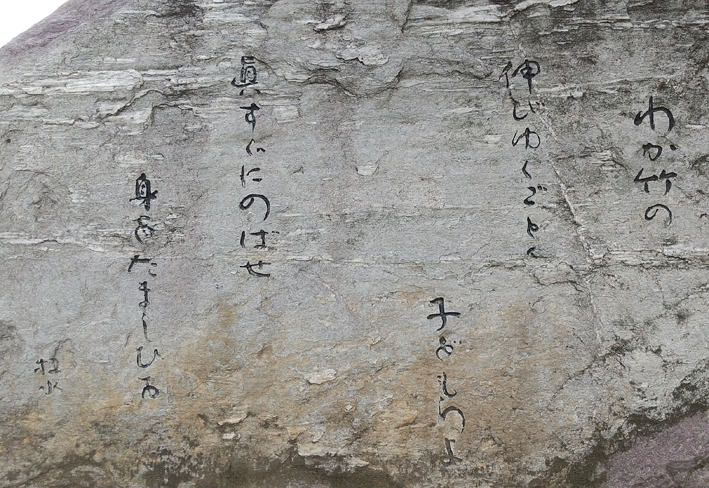 わか竹の
伸びゆくごとく
子どもらよ
眞すぐにのばせ
身をたましひを
牧水